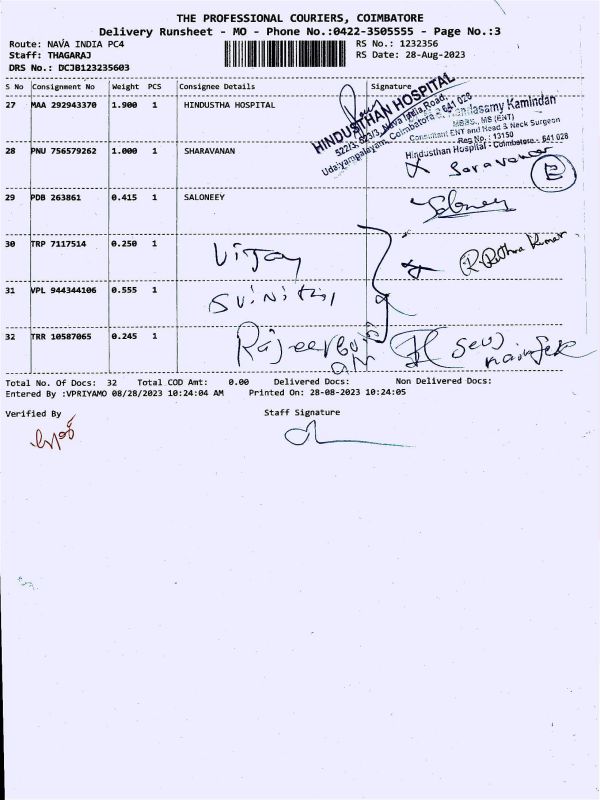 THE PROFESSIONAL COURIERS, COIMBATORE
Delivery Runsheet - MO - Phone No.:0422-3505555 - Page No.:3
Route: NAVA INDIA PC4 RS No.: 1232356
Staff: THAGARAJ RS Date: 28-Aug-2023
DRS No.: DCJB123235603
S No Consignment No Weight PCS Consignee Details Signature
27 MAA 292943370 1.900 1 HINDUSTHA HOSPITAL
HINDUSTHAN HOSPITAL
522/3, 523/3, Nava India Road,
Udaiyampalayam, Coimbatore - 641 028
Kamindan
MBBS., MS (ENT)
Consultant ENT and Head & Neck Surgeon
Reg No. : 13150
Hindusthan Hospital - Coimbatore - 641 028
28 PNU 756579262 1.000 1 SHARAVANAN Saravanan E
29 PDB 263861 0.415 1 SALONEEY Saloneey
30 TRP 7117514 0.250 1 Vijay
31 VPL 944344106 0.555 1
32 TRR 10587065 0.245 1
Total No. Of Docs: 32 Total COD Amt: 0.00 Delivered Docs: Non Delivered Docs:
Entered By :VPRIYAMO 08/28/2023 10:24:04 AM Printed On: 28-08-2023 10:24:05
Verified By Staff Signature